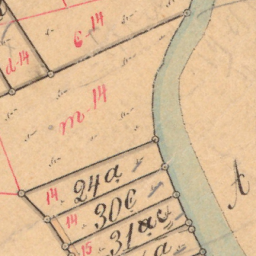 c 14
d 14
m 14
14
24a
14
30c
A
15
31ac
a